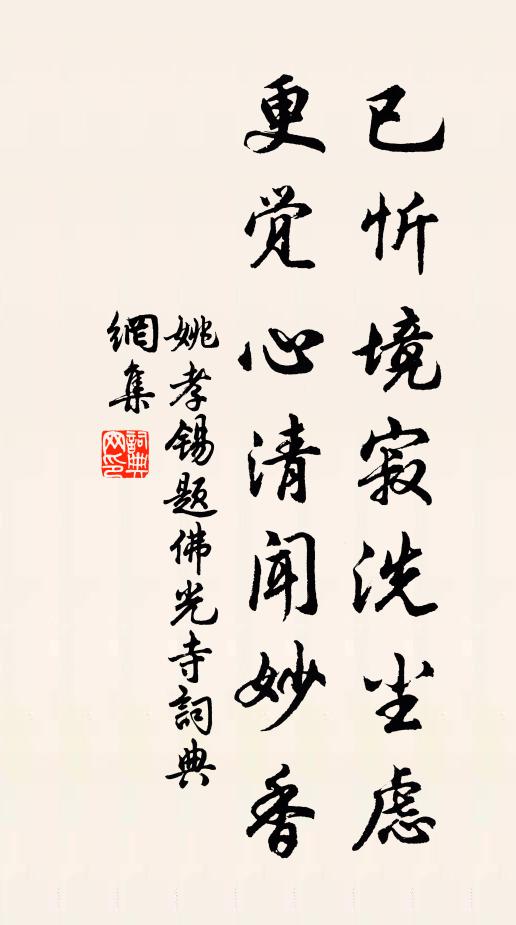 已忻境寂洗尘虑
更觉心清闻妙香
姚孝锡题佛光寺詞典
網集
詞典
网印